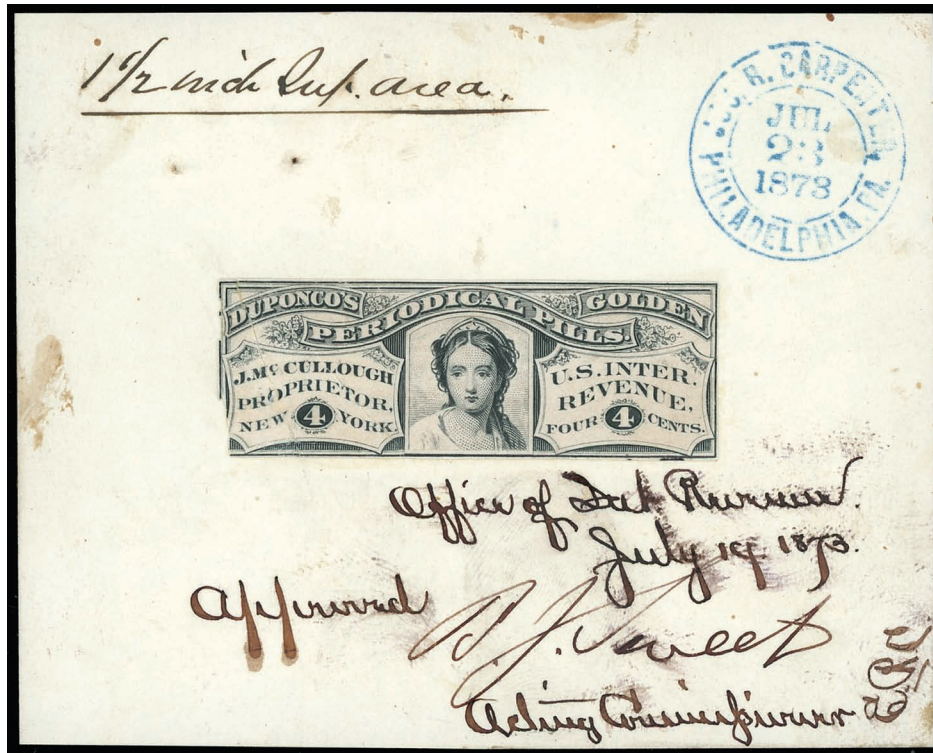 1 1/2 inch Sup. area.
JOS. R. CARPENTER.
JUL
23
1873
PHILADELPHIA, PA.
DUPONCO'S GOLDEN
PERIODICAL PILLS.
J. Mc CULLOUGH
PROPRIETOR,
NEW 4 YORK
U.S. INTER.
REVENUE,
FOUR 4 CENTS.
Office of Int Revenue.
July 19. 1873.
Approved
B. J. Sweet
Acting Commissioner